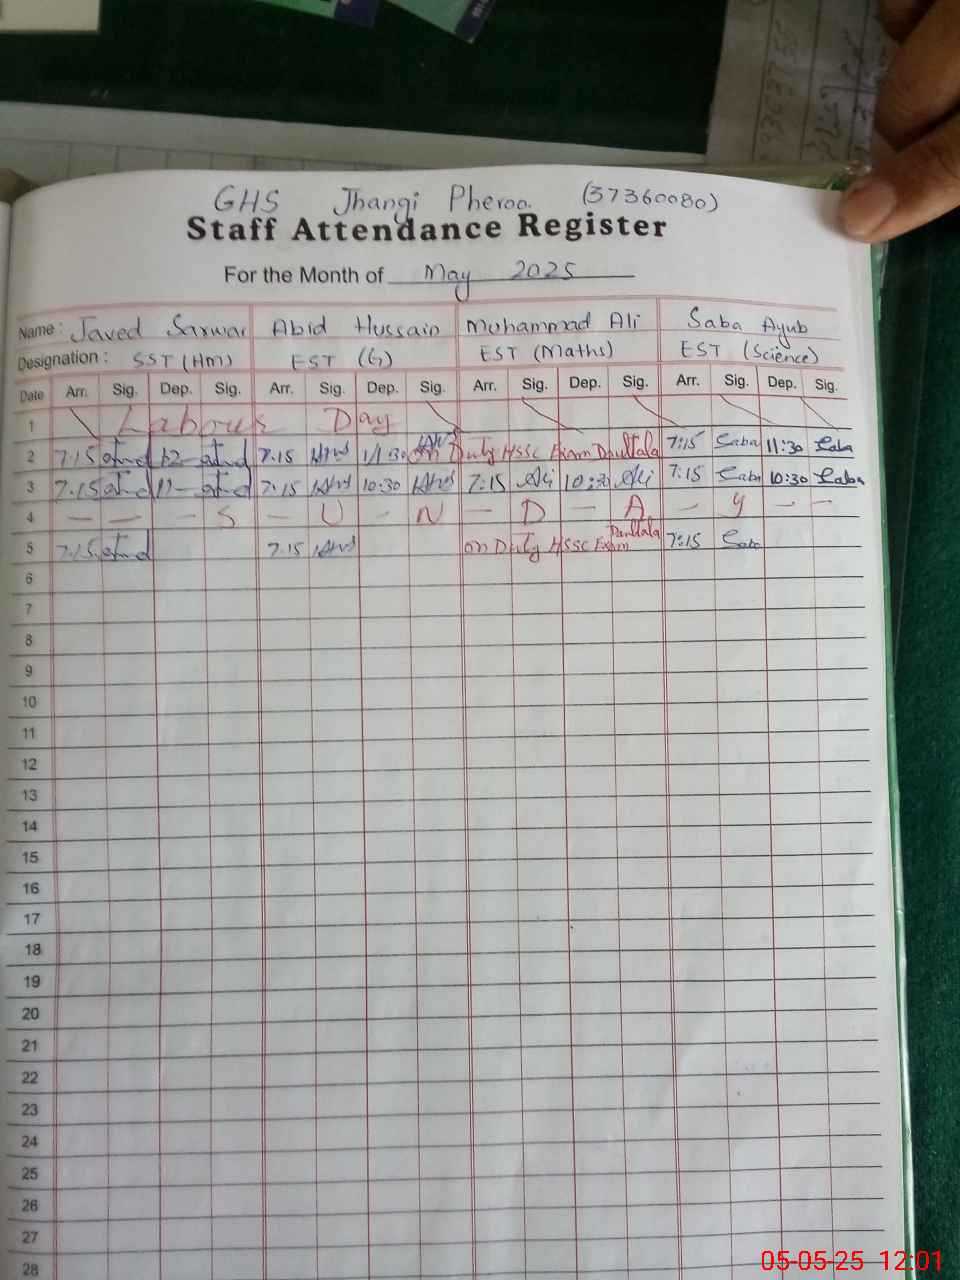 GHS Jhangi Pheroo. (37360080)
Staff Attendance Register
For the Month of May 2025
Name : Javed Sarwar Abid Hussain Mohammad Ali Saba Ayub
Designation : SST (HM) EST (G) EST (Maths) EST (Science)
Date Arr. Sig. Dep. Sig. Arr. Sig. Dep. Sig. Arr. Sig. Dep. Sig. Arr. Sig. Dep. Sig.
1 Labour Day
2 7.15 12- 7.15 11.30 on Duty HSSC Exam Daultala 7:15 Saba 11:30 Saba
3 7.15 11- 7.15 10:30 7:15 Ali 10:30 Ali 7:15 Saba 10:30 Saba
4 — — - S - U - N - D - A - y - -
5 7.15 7.15 on Duty HSSC Exam Daultala 7:15 Saba
6
7
8
9
10
11
12
13
14
15
16
17
18
19
20
21
22
23
24
25
26
27
28
05-05-25 12:01